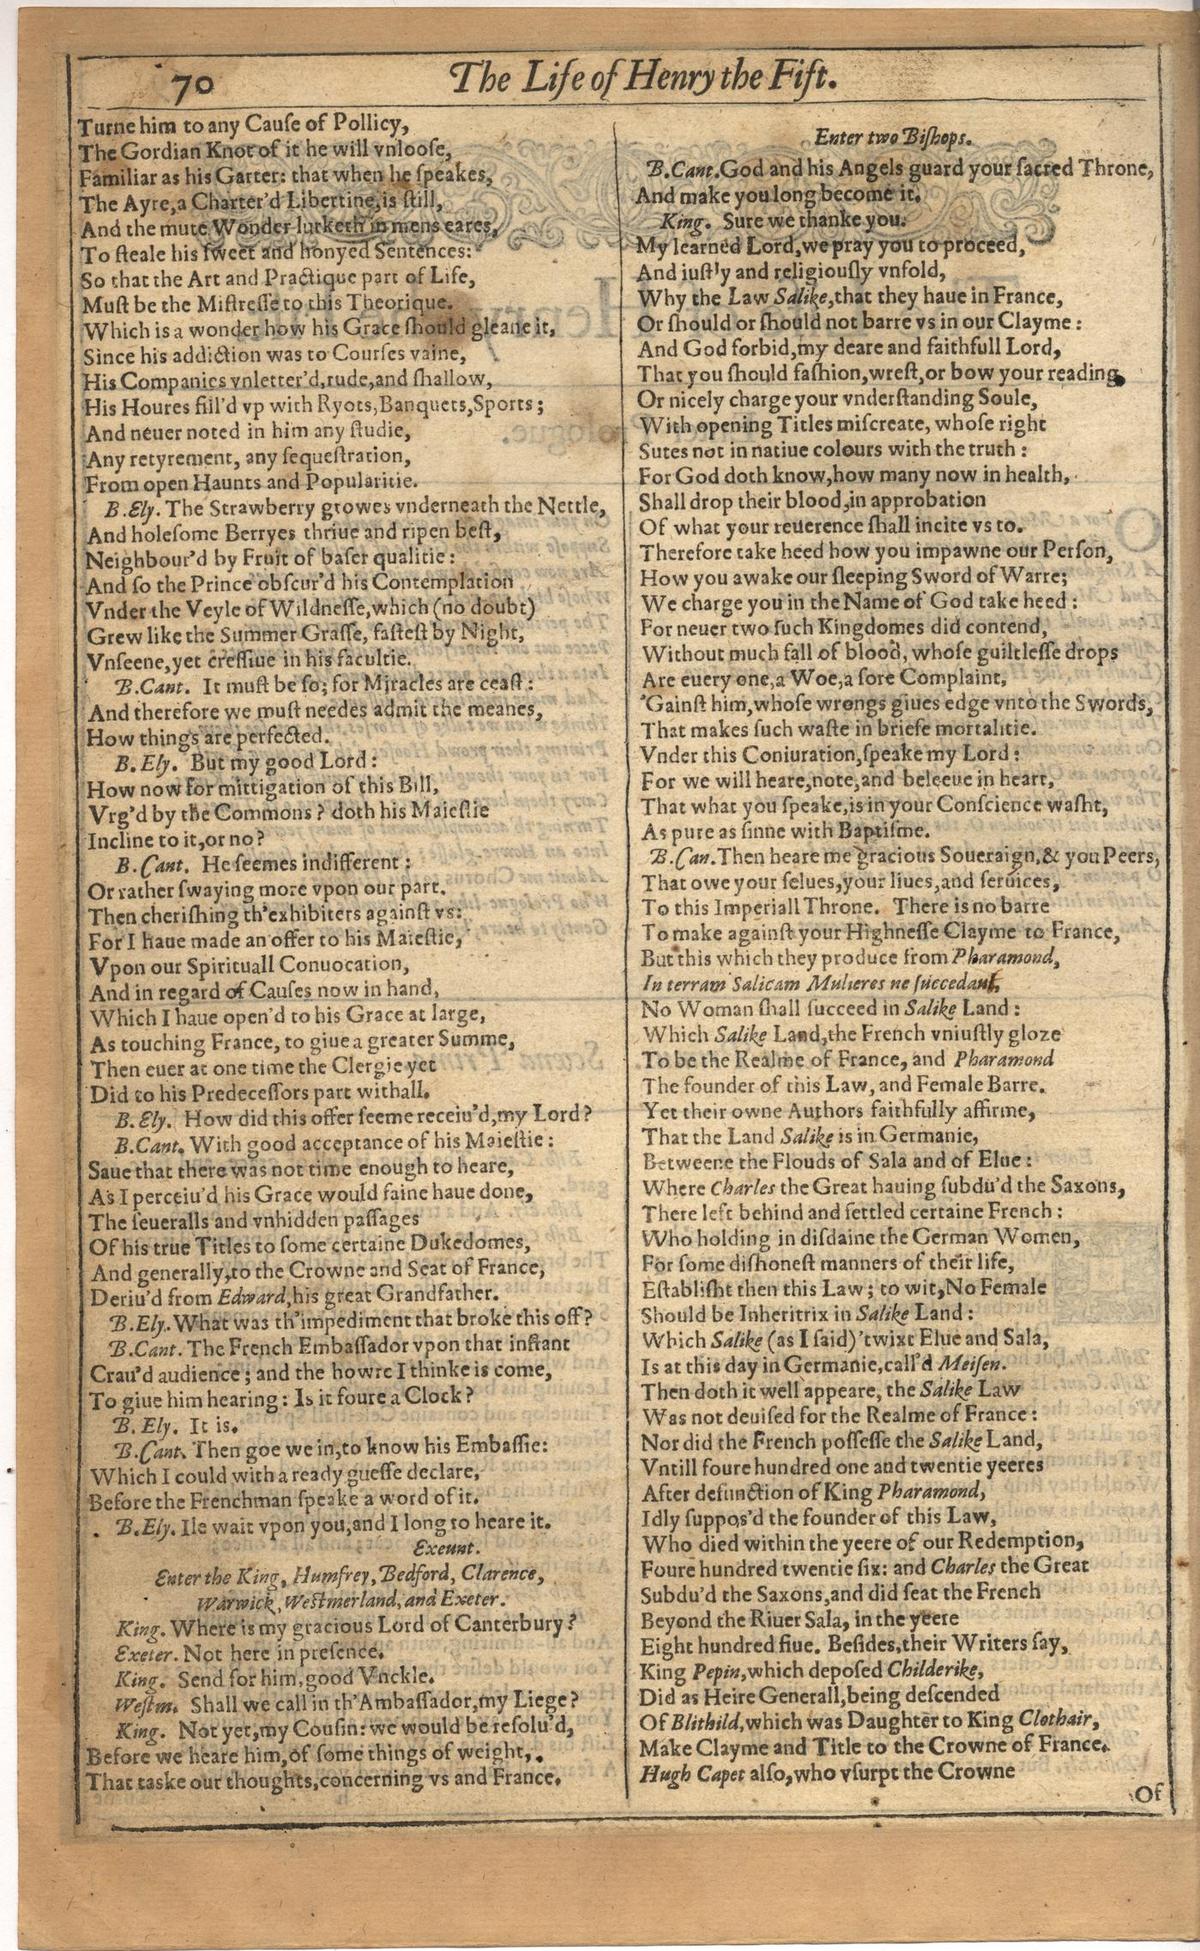 70
The Life of Henry the Fift.
Turne him to any Cauſe of Pollicy,
The Gordian Knot of it he will vnlooſe,
Familiar as his Garter: that when he ſpeakes,
The Ayre, a Charter'd Libertine, is ſtill,
And the mute Wonder lurketh in mens eares,
To ſteale his ſweet and honyed Sentences:
So that the Art and Practique part of Life,
Muſt be the Miſtreſſe to this Theorique.
Which is a wonder how his Grace ſhould gleane it,
Since his addiction was to Courſes vaine,
His Companies vnletter'd, rude, and ſhallow,
His Houres fill'd vp with Ryots, Banquets, Sports;
And neuer noted in him any ſtudie,
Any retyrement, any ſequeſtration,
From open Haunts and Popularitie.
B.Ely. The Strawberry growes vnderneath the Nettle,
And holeſome Berryes thriue and ripen beſt,
Neighbour'd by Fruit of baſer qualitie:
And ſo the Prince obſcur'd his Contemplation
Vnder the Veyle of Wildneſſe, which (no doubt)
Grew like the Summer Graſſe, faſteſt by Night,
Vnſeene, yet creſſiue in his facultie.
B.Cant. It muſt be ſo; for Miracles are ceaſt:
And therefore we muſt needes admit the meanes,
How things are perfected.
B.Ely. But my good Lord:
How now for mittigation of this Bill,
Vrg'd by the Commons? doth his Maieſtie
Incline to it, or no?
B.Cant. He ſeemes indifferent:
Or rather ſwaying more vpon our part,
Then cheriſhing th'exhibiters againſt vs:
For I haue made an offer to his Maieſtie,
Vpon our Spirituall Conuocation,
And in regard of Cauſes now in hand,
Which I haue open'd to his Grace at large,
As touching France, to giue a greater Summe,
Then euer at one time the Clergie yet
Did to his Predeceſſors part withall.
B.Ely. How did this offer ſeeme receiu'd, my Lord?
B.Cant. With good acceptance of his Maieſtie:
Saue that there was not time enough to heare,
As I perceiu'd his Grace would faine haue done,
The ſeueralls and vnhidden paſſages
Of his true Titles to ſome certaine Dukedomes,
And generally, to the Crowne and Seat of France,
Deriu'd from Edward, his great Grandfather.
B.Ely. What was th'impediment that broke this off?
B.Cant. The French Embaſſador vpon that inſtant
Crau'd audience; and the howre I thinke is come,
To giue him hearing: Is it foure a Clock?
B.Ely. It is.
B.Cant. Then goe we in, to know his Embaſſie:
Which I could with a ready gueſſe declare,
Before the Frenchman ſpeake a word of it.
B.Ely. Ile wait vpon you, and I long to heare it.
Exeunt.
Enter the King, Humfrey, Bedford, Clarence,
Warwick, Weſtmerland, and Exeter.
King. Where is my gracious Lord of Canterbury?
Exeter. Not here in preſence.
King. Send for him, good Vnckle.
Weſtm. Shall we call in th'Ambaſſador, my Liege?
King. Not yet, my Couſin: we would be reſolu'd,
Before we heare him, of ſome things of weight,
That taske our thoughts, concerning vs and France.
Enter two Biſhops.
B.Cant. God and his Angels guard your ſacred Throne,
And make you long become it.
King. Sure we thanke you.
My learned Lord, we pray you to proceed,
And iuſtly and religiouſly vnfold,
Why the Law Salike, that they haue in France,
Or ſhould or ſhould not barre vs in our Clayme:
And God forbid, my deare and faithfull Lord,
That you ſhould faſhion, wreſt, or bow your reading,
Or nicely charge your vnderſtanding Soule,
With opening Titles miſcreate, whoſe right
Sutes not in natiue colours with the truth:
For God doth know, how many now in health,
Shall drop their blood, in approbation
Of what your reuerence ſhall incite vs to.
Therefore take heed how you impawne our Perſon,
How you awake our ſleeping Sword of Warre;
We charge you in the Name of God take heed:
For neuer two ſuch Kingdomes did contend,
Without much fall of blood, whoſe guiltleſſe drops
Are euery one, a Woe, a ſore Complaint,
'Gainſt him, whoſe wrongs giues edge vnto the Swords,
That makes ſuch waſte in briefe mortalitie.
Vnder this Coniuration, ſpeake my Lord:
For we will heare, note, and beleeue in heart,
That what you ſpeake, is in your Conſcience waſht,
As pure as ſinne with Baptiſme.
B.Can. Then heare me gracious Soueraign, & you Peers,
That owe your ſelues, your liues, and ſeruices,
To this Imperiall Throne. There is no barre
To make againſt your Highneſſe Clayme to France,
But this which they produce from Pharamond,
In terram Salicam Mulieres ne ſuccedant,
No Woman ſhall ſucceed in Salike Land:
Which Salike Land, the French vniuſtly gloze
To be the Realme of France, and Pharamond
The founder of this Law, and Female Barre.
Yet their owne Authors faithfully affirme,
That the Land Salike is in Germanie,
Betweene the Flouds of Sala and of Elue:
Where Charles the Great hauing ſubdu'd the Saxons,
There left behind and ſettled certaine French:
Who holding in diſdaine the German Women,
For ſome diſhoneſt manners of their life,
Eſtabliſht then this Law; to wit, No Female
Should be Inheritrix in Salike Land:
Which Salike (as I ſaid) 'twixt Elue and Sala,
Is at this day in Germanie, call'd Meiſen.
Then doth it well appeare, the Salike Law
Was not deuiſed for the Realme of France:
Nor did the French poſſeſſe the Salike Land,
Vntill foure hundred one and twentie yeeres
After defunction of King Pharamond,
Idly ſuppos'd the founder of this Law,
Who died within the yeere of our Redemption,
Foure hundred twentie ſix: and Charles the Great
Subdu'd the Saxons, and did ſeat the French
Beyond the Riuer Sala, in the yeere
Eight hundred fiue. Beſides, their Writers ſay,
King Pepin, which depoſed Childerike,
Did as Heire Generall, being deſcended
Of Blithild, which was Daughter to King Clothair,
Make Clayme and Title to the Crowne of France.
Hugh Capet alſo, who vſurpt the Crowne
Of